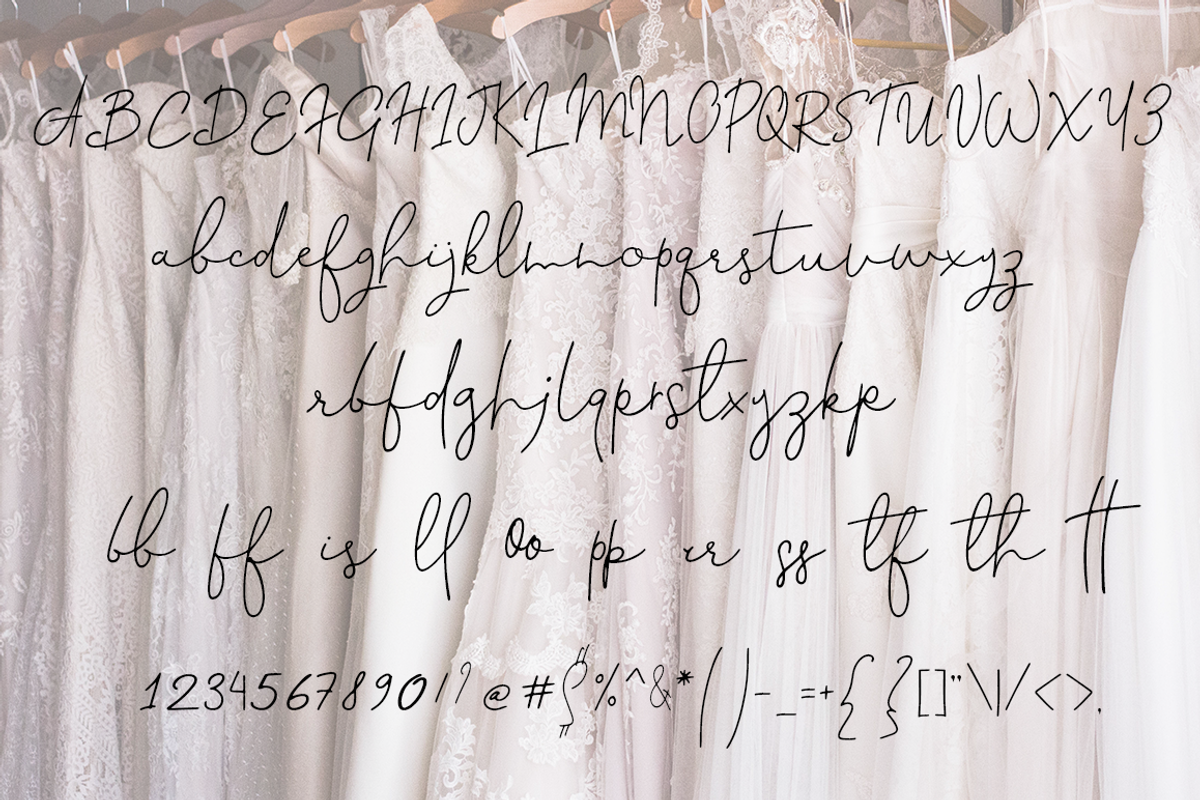 ABCDEFGHIJKLMNOPQRSTUVWXYZ
abcdefghijklmnopqrstuvwxyz
rbfdghjlqprstxyzkp
bb ff is ll oo pp rr ss tf th tt
1234567890!?@#$%^&*()-_=+{}[]"\|/<>.